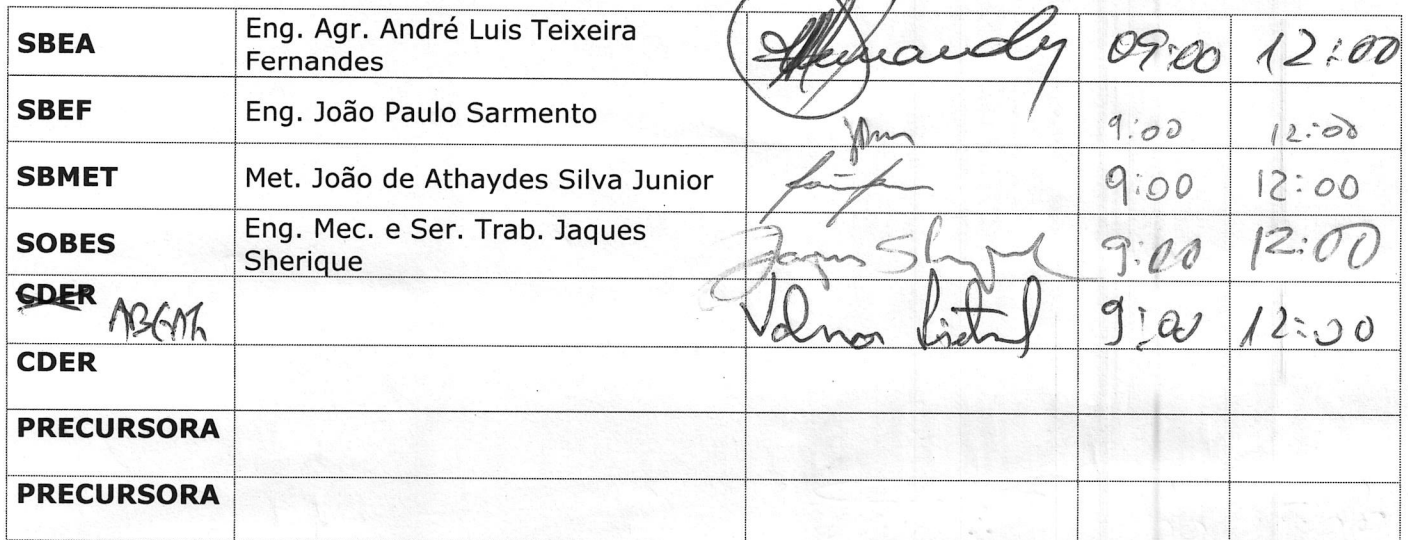 SBEA Eng. Agr. André Luis Teixeira Fernandes 09:00 12:00
SBEF Eng. João Paulo Sarmento 9:00 12:00
SBMET Met. João de Athaydes Silva Junior 9:00 12:00
SOBES Eng. Mec. e Ser. Trab. Jaques Sherique Jaques Sherique 9:00 12:00
CDER 9:00 12:00
CDER
PRECURSORA
PRECURSORA